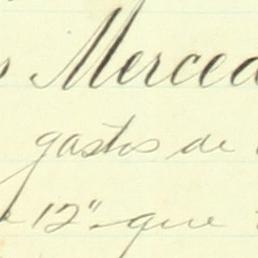 s Merced
gastos de
12" que